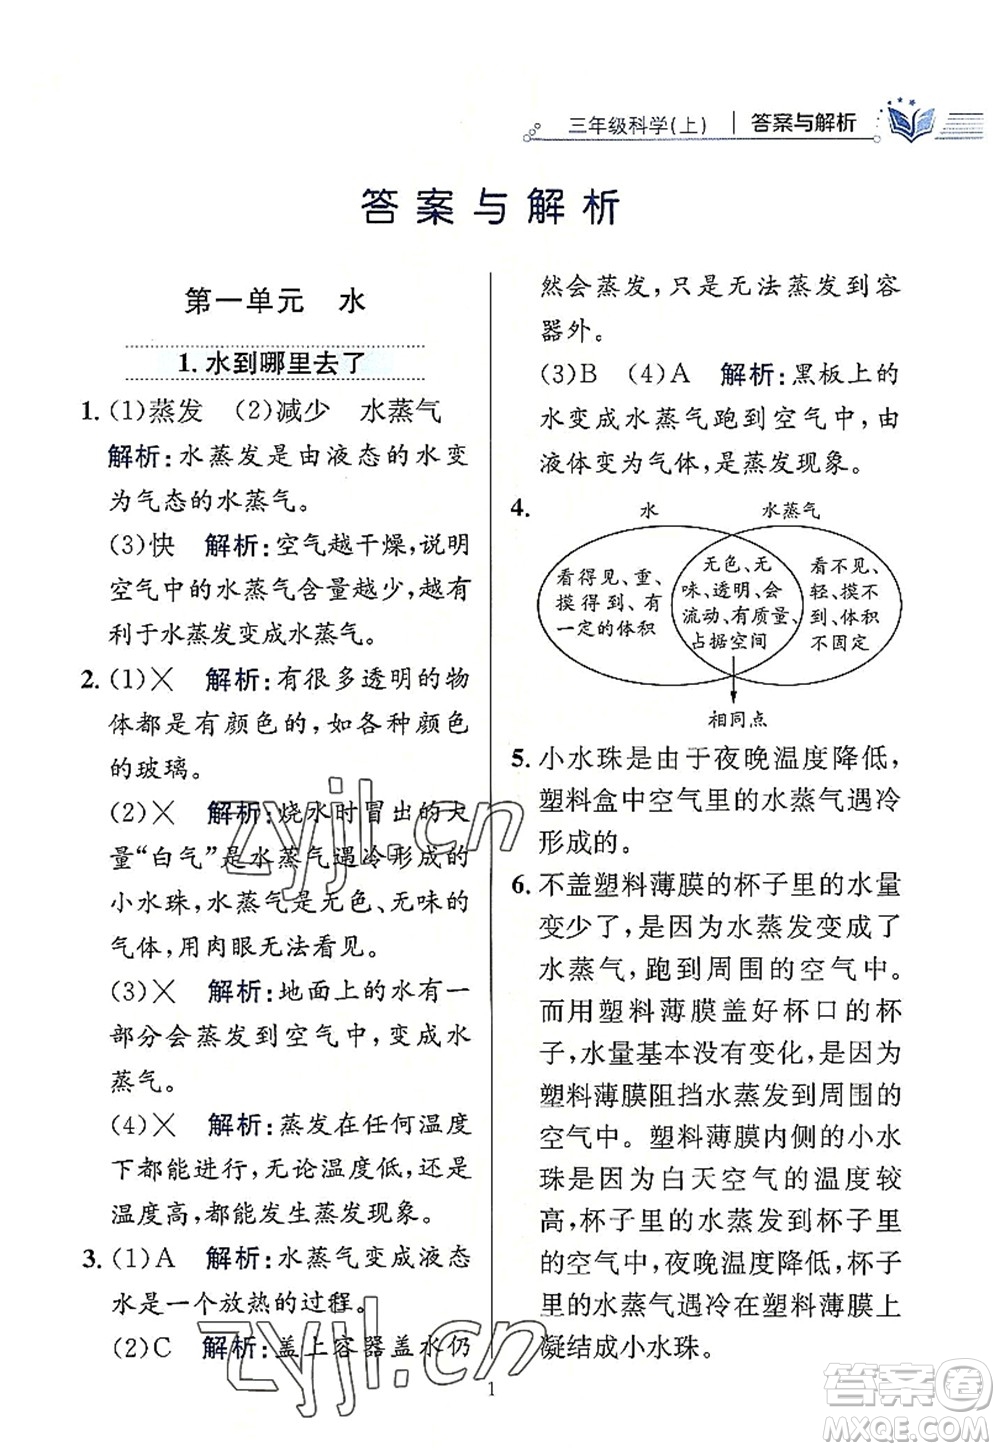 三年级科学(上) 答案与解析
答案与解析
第一单元 水
1.水到哪里去了
1.(1)蒸发 (2)减少 水蒸气
解析:水蒸发是由液态的水变
为气态的水蒸气。
(3)快 解析:空气越干燥,说明
空气中的水蒸气含量越少,越有
利于水蒸发变成水蒸气。
2.(1)× 解析:有很多透明的物
体都是有颜色的,如各种颜色
的玻璃。
(2)× 解析:烧水时冒出的大
量“白气”是水蒸气遇冷形成的
小水珠,水蒸气是无色、无味的
气体,用肉眼无法看见。
(3)× 解析:地面上的水有一
部分会蒸发到空气中,变成水
蒸气。
(4)× 解析:蒸发在任何温度
下都能进行,无论温度低,还是
温度高,都能发生蒸发现象。
3.(1)A 解析:水蒸气变成液态
水是一个放热的过程。
(2)C 解析:盖上容器盖水仍
然会蒸发,只是无法蒸发到容
器外。
(3)B (4)A 解析:黑板上的
水变成水蒸气跑到空气中,由
液体变为气体,是蒸发现象。
4.
水 水蒸气
看得见、重、
摸得到、有
一定的体积
无色、无
味、透明、会
流动、有质量、
占据空间
看不见、
轻、摸不
到、体积
不固定
相同点
5.小水珠是由于夜晚温度降低,
塑料盒中空气里的水蒸气遇冷
形成的。
6.不盖塑料薄膜的杯子里的水量
变少了,是因为水蒸发变成了
水蒸气,跑到周围的空气中。
而用塑料薄膜盖好杯口的杯
子,水量基本没有变化,是因为
塑料薄膜阻挡水蒸发到周围的
空气中。塑料薄膜内侧的小水
珠是因为白天空气的温度较
高,杯子里的水蒸发到杯子里
的空气中,夜晚温度降低,杯子
里的水蒸气遇冷在塑料薄膜上
凝结成小水珠。
1
zyjl.cn
zyjl.cn
答案圈
MXQE.COM